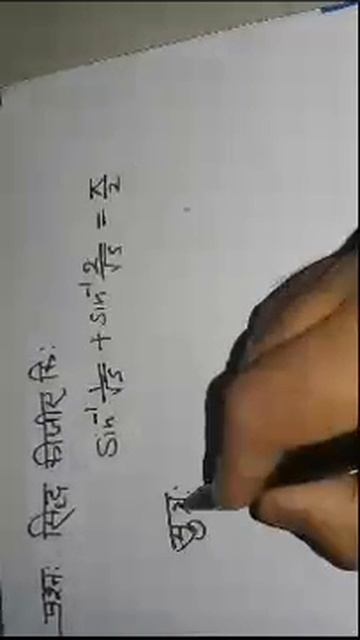 प्रश्न: सिद्ध कीजिए कि:
Sin⁻¹ 1/√5 + Sin⁻¹ 2/√5 = π/2
सूत्र: